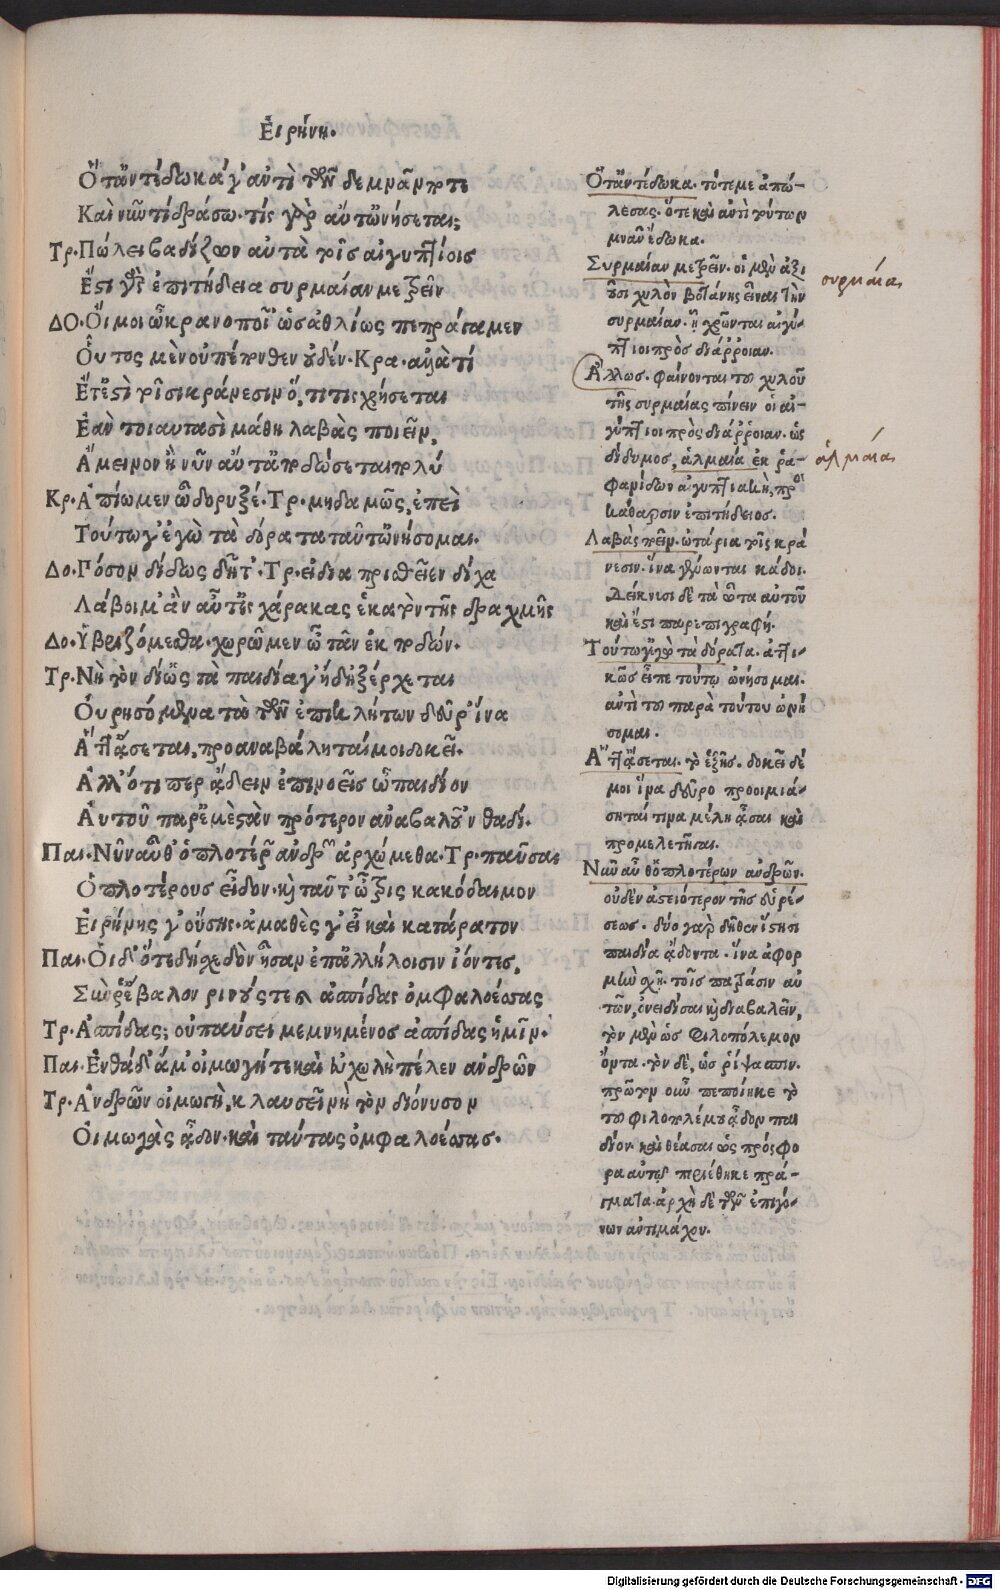 Εἰρήνη.
Ὅτ' ἀντέδωκά γ' ἀντὶ τῶνδε μνᾶν ποτε
Καὶ νῦν τί δράσω. τίς γὰρ αὔτ' ὠνήσεται;
Τρ. Πώλει βαδίζων αὐτὰ τοῖς αἰγυπτίοις
Ἔστι γὰρ ἐπιτήδεια συρμαίαν μετρεῖν
ΔΟ. Οἴμοι ὦ κρανοποῖ' ὡς ἀθλίως πεπράγαμεν
Οὗτος μὲν οὐ πέπονθεν οὐδέν. Κρα. ἀλλὰ τί
Ἔτ' ἐστὶ τοῖσι κράνεσιν ὅ,τι τις χρήσεται
Ἐὰν τοιαυτασὶ μάθῃ λαβὰς ποιεῖν,
Ἄμεινον ἢ νῦν αὔτ' ἀποδώσεται πολύ
Κρ. Ἀπίωμεν ὦ δορυξέ. Τρ. μηδαμῶς, ἐπεὶ
Τούτῳ γ' ἐγὼ τὰ δόρατα ταῦτ' ὠνήσομαι.
Δο. Πόσον δίδως δῆτ'. Τρ. εἰ διαπρισθεῖεν δίχα
Λάβοιμ' ἂν αὔτ' εἰς χάρακας ἑκατὸν τῆς δραχμῆς
Δο. Ὑβριζόμεθα. χωρῶμεν ὦ τᾶν ἐκποδών.
Τρ. Νὴ τὸν δί' ὡς τὰ παιδία γ' ἤδη 'ξέρχεται
Οὐρησόμενα τὰ τῶν ἐπικλήτων δεῦρ' ἵνα
Ἅττ' ᾄσεται, προαναβάληταί μοι δοκεῖ.
Ἀλλ' ὅτι περ ᾄδειν ἐπινοεῖς ὦ παιδίον
Αὐτοῦ παρ' ἐμὲ στὰν πρότερον ἀναβαλοῦ 'νθαδί.
Παι. Νῦν αὖθ' ὁπλοτέρων ἀνδρῶν ἀρχώμεθα. Τρ. παῦσαι
Ὁπλοτέρους εἶδον. καὶ ταῦτ' ὦ τρὶς κακόδαιμον
Εἰρήνης γ' οὔσης. ἀμαθὲς γ' εἶ καὶ κατάρατον
Παι. Οἱ δ' ὅτε δὴ σχεδὸν ἦσαν ἐπ' ἀλλήλοισιν ἰόντες,
Σύν ῥ' ἔβαλον ῥινούς τε καὶ ἀσπίδας ὀμφαλοέσσας
Τρ. Ἀσπίδας; οὐ παύσει μεμνημένος ἀσπίδας ἡμῖν.
Παι. Ἔνθα δ' ἅμ' οἰμωγή τε καὶ εὐχωλὴ πέλεν ἀνδρῶν
Τρ. Ἀνδρῶν οἰμωγή, κλαυσεῖ νὴ τὸν διόνυσον
Οἰμωγὰς ᾄδων. καὶ ταύτας ὀμφαλοέσσας.
Ὅτ' ἀντέδωκα. τότε με ἀπώ-
λεσας. ὅτε καὶ ἀντὶ τούτων
μνᾶν ἔδωκα.
Συρμαίαν μετρεῖν. οἱ μὲν ἀξι
οῦσι χυλὸν βοτάνης εἶναι τὴν
συρμαίαν. ᾗ χρῶνται αἰγύ-
πτιοι πρὸς διάῤῥοιαν.
Ἄλλως. φαίνονται τοῦ χυλοῦ
τῆς συρμαίας πίνειν οἱ αἰ-
γύπτιοι πρὸς διάῤῥοιαν. ὡς
δίδυμος, ἁλμαία ἐκ ῥα-
φανίδων αἰγυπτιακὴ, πρὸς
κάθαρσιν ἐπιτήδειος.
Λαβὰς ποιεῖν. ὠτάρια τοῖς κρά
νεσιν. ἵνα γένωνται κάδοι.
δείκνυσι δὲ τὰ ὦτα αὐτοῦ
καὶ ἔστι παρεπιγραφή.
Τούτῳ γ' ἐγὼ τὰ δόρατα. ἀττι-
κῶς εἶπε τούτῳ ὠνήσομαι.
ἀντὶ τοῦ παρὰ τούτου ὠνή
σομαι.
Ἅττ' ᾄσεται. τὸ ἑξῆς. δοκεῖ δέ
μοι ἵνα δεῦρο προοιμιά-
σηται τινα μέλη ᾆσαι καὶ
προμελετῆσαι.
Νῦν αὖθ' ὁπλοτέρων ἀνδρῶν.
οὐδὲν ἀστειότερον τῆς εὑρέ-
σεως. δύο γὰρ δῆθεν ἵστησι
παιδία ᾄδοντα. ἵνα ἀφορ
μὴν σχῇ. τοῖς πατράσιν αὐ
τῶν, ὀνειδίσαι καὶ διαβαλεῖν,
τὸν μὲν ὡς φιλοπόλεμον
ὄντα. τὸν δὲ, ὡς ῥίψασπιν.
πρῶτον οὖν πεποίηκε τὸ
τοῦ φιλοπολέμου ᾆδον παι
δίον. καὶ θέασαι ὡς πρόσφο
ρα αὐτῷ περιέθηκε πρά-
γματα. ἀρχὴ δὲ τῶν ἐπιγό-
νων ἀντιμάχου.
συρμαία
ἁλμαία
Digitalisierung gefördert durch die Deutsche Forschungsgemeinschaft - DFG